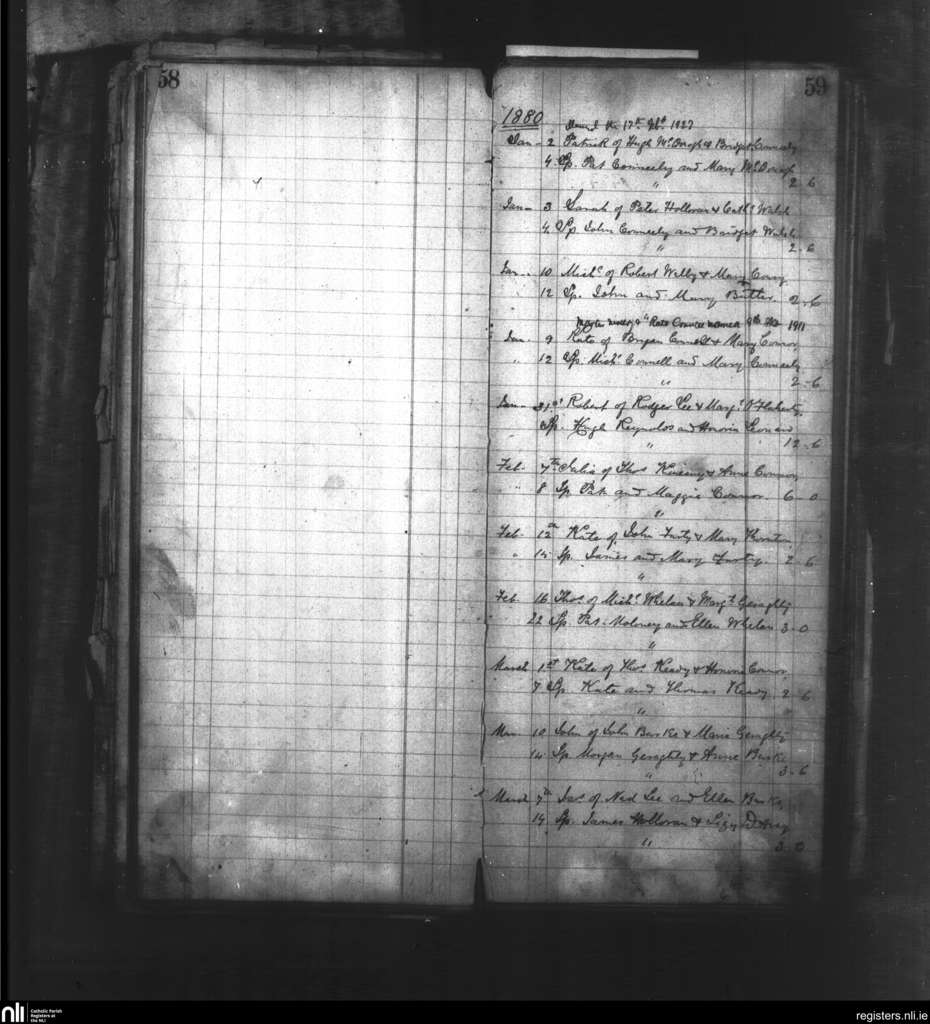 58
59
1880
the 17th 1927
Jan - 2 Patrick of Hugh McDonogh & Bridget Conneely
4 Sp. Pat Conneeley and Mary McDonogh
" 2-6
Jan - 3 Sarah of Peter Holloran & Cathe Walsh
4 Sp John Conneely and Bridget Walsh
" 2-6
Jan - 10 Michl of Robert Welby & Mary
12 Sp. John and Mary Butler 2-6
Kate 9th 1911
Jan - 9 Kate of Bryan Connell & Mary Connor
" 12 Sp. Michl Connell and Mary Conneely
" 2-6
Jan - 31st Robert of Rodger Lee & Margt O'Flaherty
Sp. Hugh Reynolds and Honoria Leonard
" 12-6
Feb. 7th Julia of Thos & Anne Connor
" 8 Sp Pat and Maggie Connor 6-0
"
Feb. 12th Kate of John & Mary Thornton
" 14 Sp. James and Mary 2-6
"
Feb. 16 Thos. of Michl Whelan & Margt Geraghty
22 Sp. Pat Moloney and Ellen Whelan 3-0
"
March 1st Kate of Thos Keady & Honoria Connor
7 Sp. Kate and Thomas Keady 2-6
"
Mar 10 John of John Burke & Maria Geraghty
14 Sp Morgan Geraghty & Anne Burke
" 3-6
March 7th Jas of Ned Lee and Ellen Burke
14 Sp. James Holloran & Lizzy
" 3-0
nli
Catholic Parish
Registers at
the NLI
registers.nli.ie